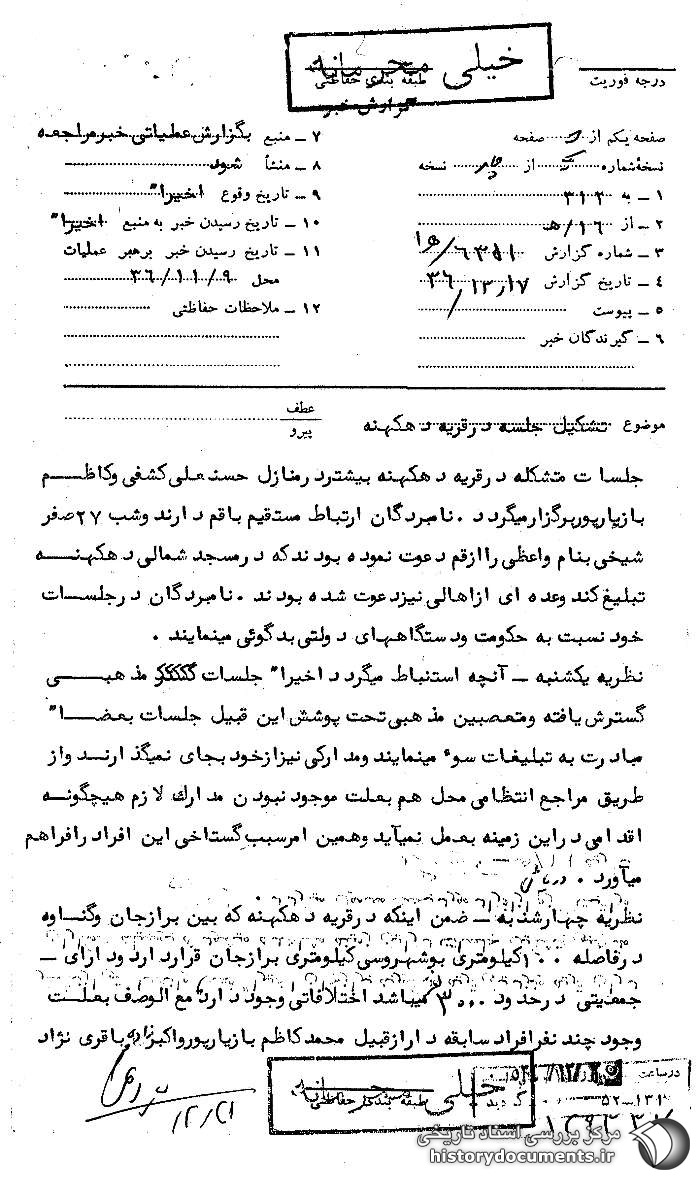 خیلی محرمانه
طبقه بندی حفاظتی
گزارش خبر
درجه فوریت
صفحه یکم از صفحه
نسخهٔ شماره از نسخه
۱ – به ۳۱۲
۲ – از ۱۶/ ه
۳ – شماره گزارش
۴ – تاریخ گزارش
۵ – پیوست
۶ – گیرندگان خبر
۷ – منبع بگزارش عملیاتی خبر مراجعه
۸ – منشأ شود
۹ – تاریخ وقوع اخیرا"
۱۰ – تاریخ رسیدن خبر به منبع اخیرا"
۱۱ – تاریخ رسیدن خبر برهبر عملیات
محل ۳۶/۱۱/۹
۱۲ – ملاحظات حفاظتی
موضوع تشکیل جلسه در قریه دهکهنه
عطف
پیرو
جلسات متشکله در قریه دهکهنه بیشتر در منازل حسنعلی کشفی و کاظم
بازیارپور برگزار میگردد . نامبردگان ارتباط مستقیم باقم دارند وشب ۲۷ صفر
شیخی بنام واعظی را ازقم دعوت نموده بودند که در مسجد شمالی دهکهنه
تبلیغ کند وعده ای ازاهالی نیز دعوت شده بودند . نامبردگان در جلسات
خود نسبت به حکومت ودستگاههای دولتی بدگوئی مینمایند .
نظریه یکشنبه – آنچه استنباط میگردد اخیرا" جلسات مذهبی
گسترش یافته ومتعصبین مذهبی تحت پوشش این قبیل جلسات بعضا"
مبادرت به تبلیغات سوء مینمایند ومدارکی نیز ازخود بجای نمیگذارند واز
طریق مراجع انتظامی محل هم بعلت موجود نبودن مدارک لازم هیچگونه
اقدامی دراین زمینه بعمل نمیآید وهمین امر سبب گستاخی این افراد رافراهم
میآورد .
نظریه چهارشنبه – ضمن اینکه در قریه دهکهنه که بین برازجان وگناوه
درفاصله ۱۰۰ کیلومتری بوشهر وسی کیلومتری برازجان قرار دارد و دارای –
جمعیتی در حدود ۳۰۰۰ میباشد اختلافاتی وجود دارد مع الوصف بعلت
وجود چند نفر افراد سابقه دار ازقبیل محمد کاظم بازیارپور واکبر باقری نژاد
خیلی محرمانه
طبقه بندی حفاظتی
در ساعت
مرکز بررسی اسناد تاریخی
historydocuments.ir